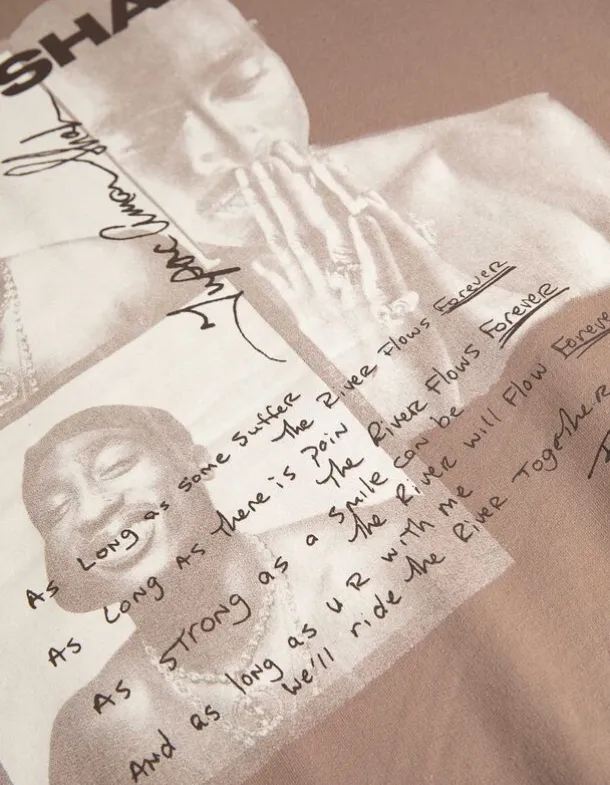 SHA
Tupac Amaru Shak
As Long as some suffer
the River Flows Forever
As Long As there is pain
the River Flows Forever
As strong as a smile can be
the River will Flow Foreve
And as long as u R with me
we'll ride the River Together